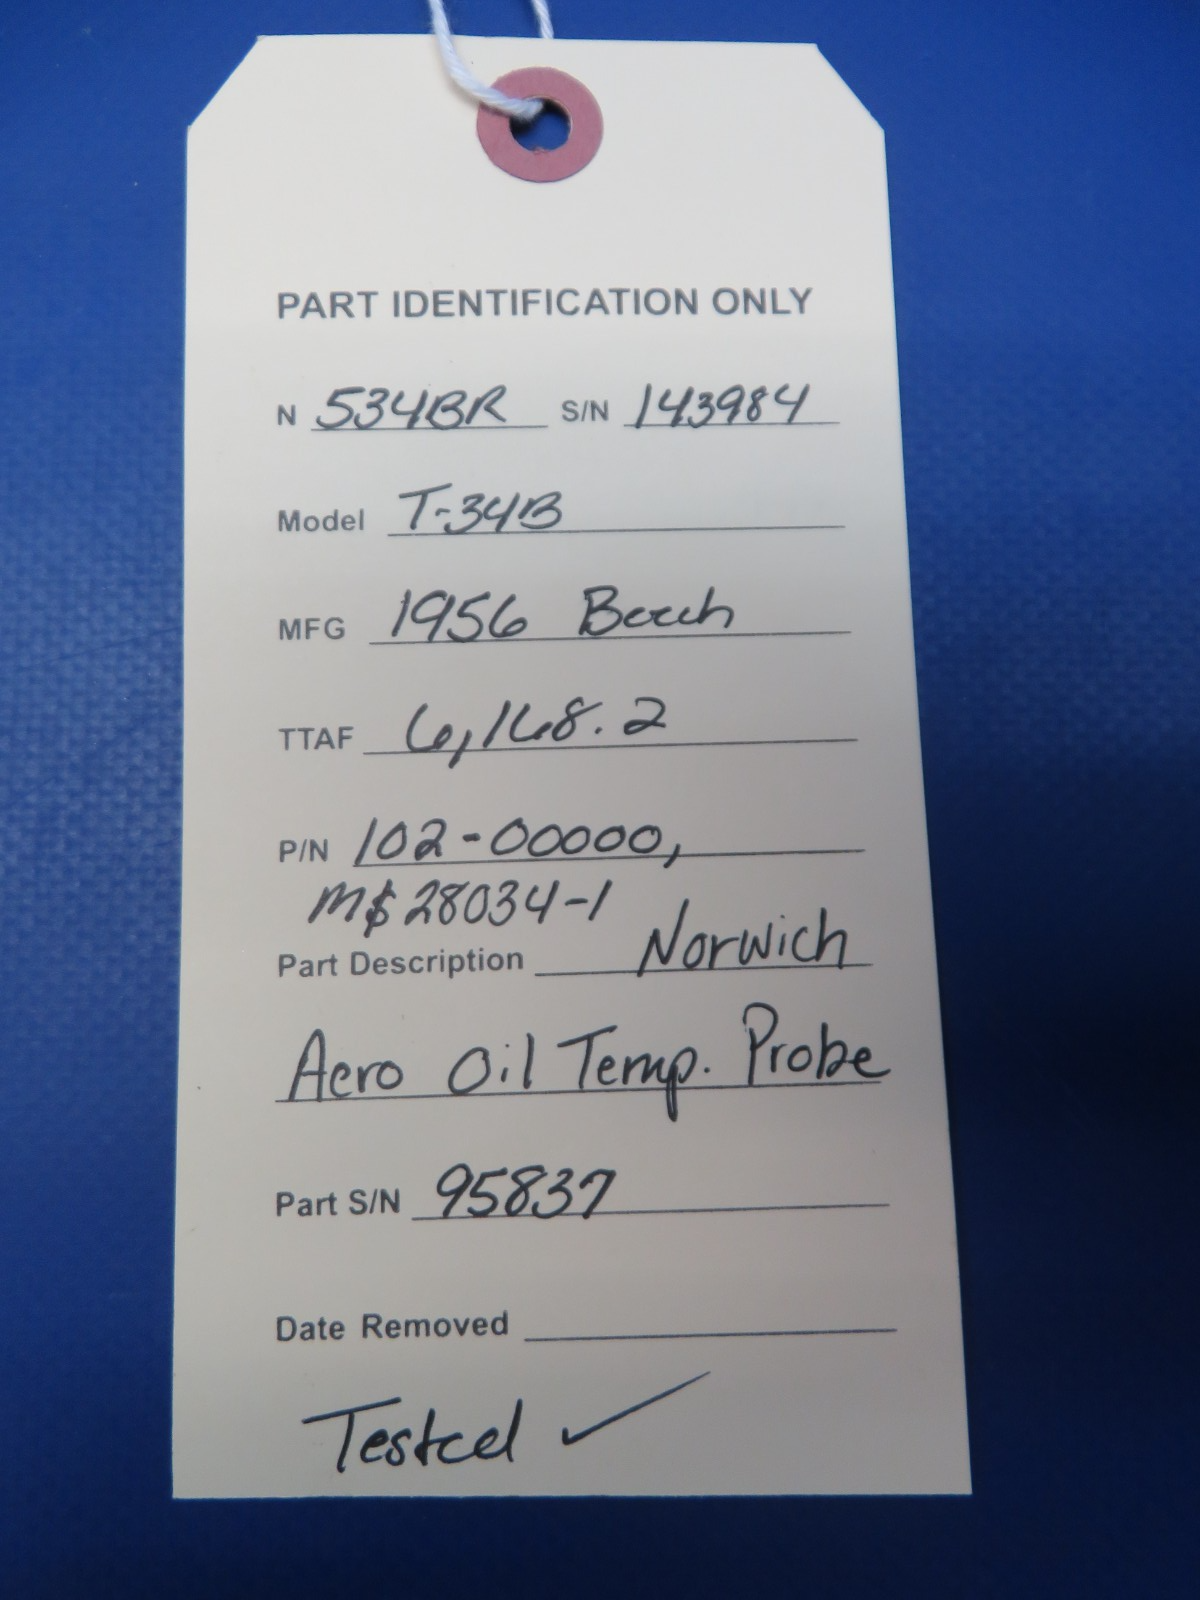 PART IDENTIFICATION ONLY
N 534BR S/N 143984
Model T-34B
MFG 1956 Beech
TTAF 6,168.2
P/N 102-00000,
MS28034-1
Part Description Norwich
Aero Oil Temp. Probe
Part S/N 95837
Date Removed
Tested ✓